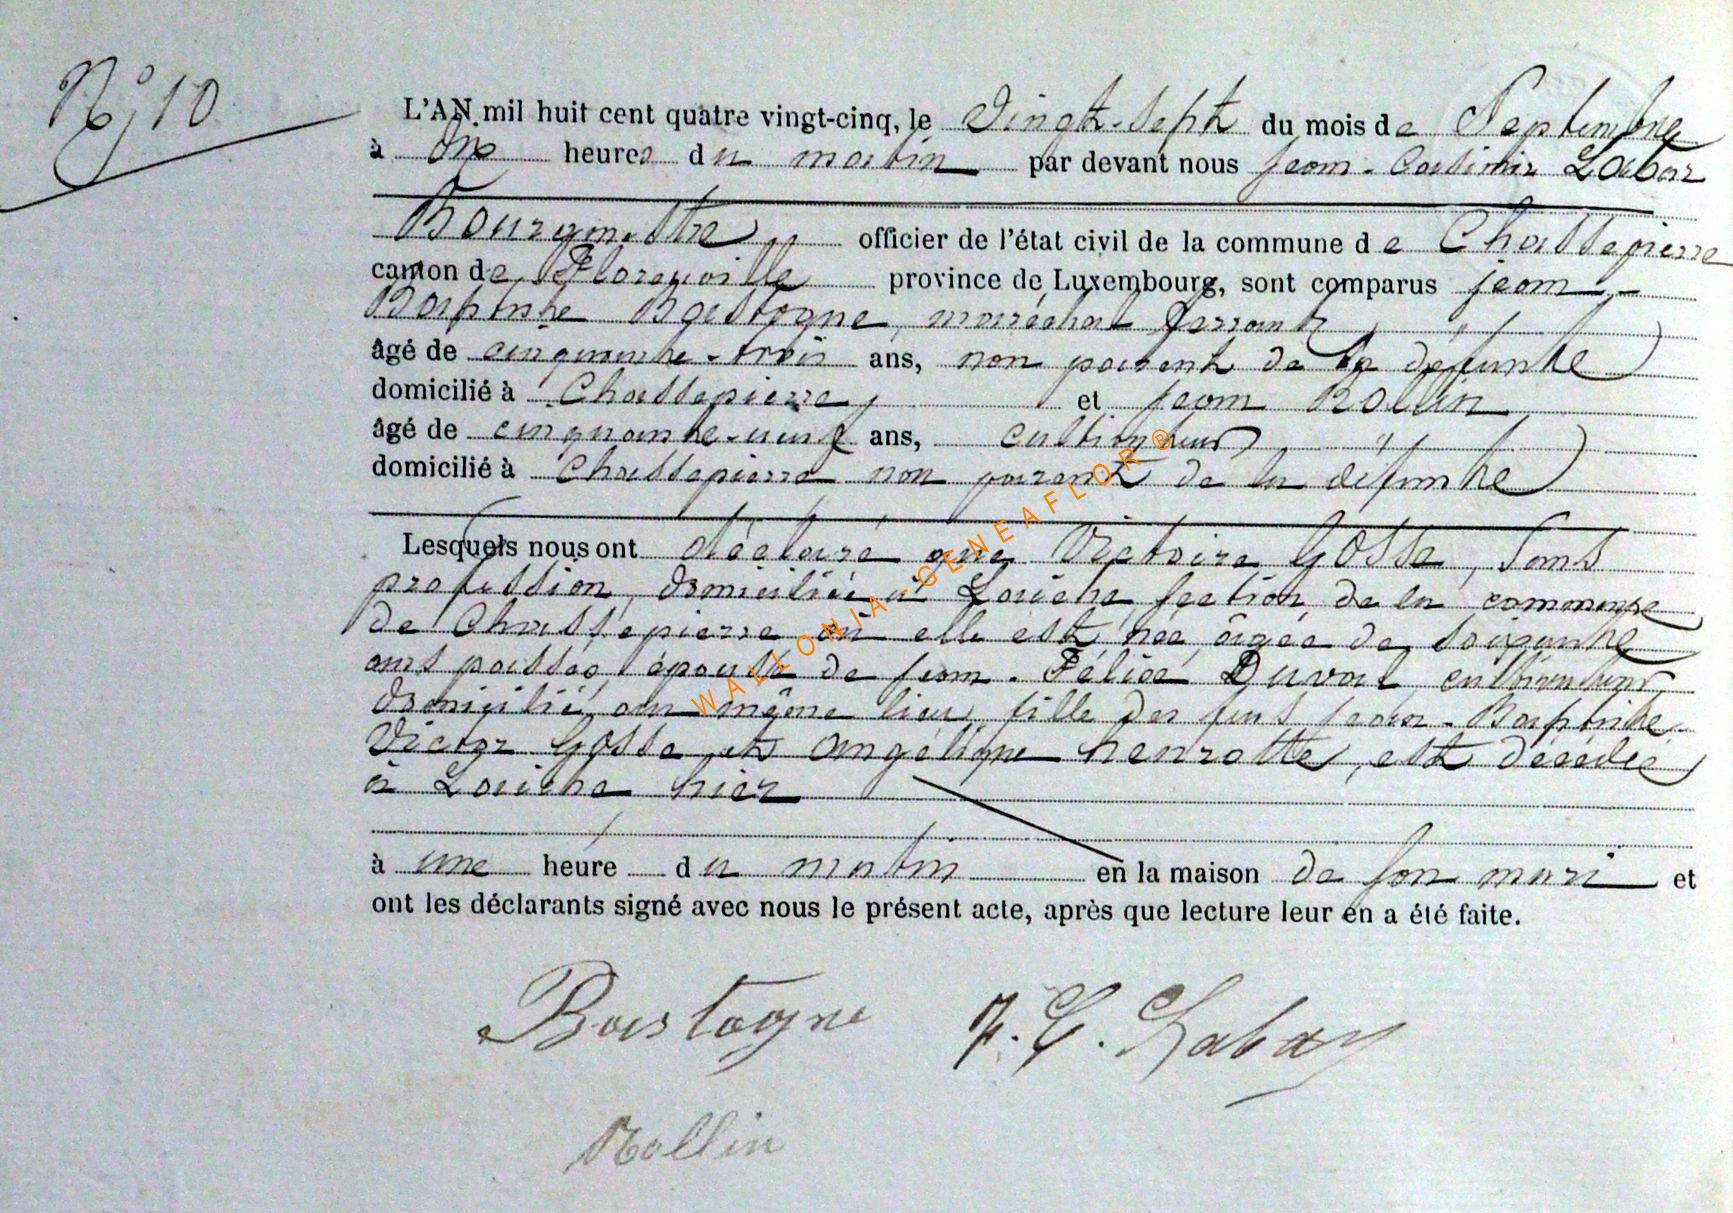 N° 10
L'AN mil huit cent quatre vingt-cinq, le Vingt-Sept du mois de Septembre
à dix heures du matin par devant nous Jean-Casimir Labar
Bourgmestre officier de l'état civil de la commune de Chassepierre
canton de Florenville province de Luxembourg, sont comparus Jean-
Baptiste Bastogne, maréchal ferrant, "
âgé de cinquante-trois ans, non parent de la défunte
domicilié à Chassepierre, et Jean Rollin,
âgé de cinquante-neuf ans, cultivateur "
domicilié à Chassepierre non parent de la défunte
Lesquels nous ont déclaré que Victoire Gosse, sans
profession, domiciliée à Laiche section de la commune
de Chassepierre où elle est née âgée de soixante
ans passés, épouse de Jean-Félicé Duval cultivateur,
domicilié au même lieu, fille des feus Jean-Baptiste-
Victor Gosse et Angélique henrotte, est décédée
à Laiche hier
à une heure du matin en la maison de son mari et
ont les déclarants signé avec nous le présent acte, après que lecture leur en a été faite.
Bastogne J. C. Labar
Rollin
WALLONIA-GENEAFLOR®